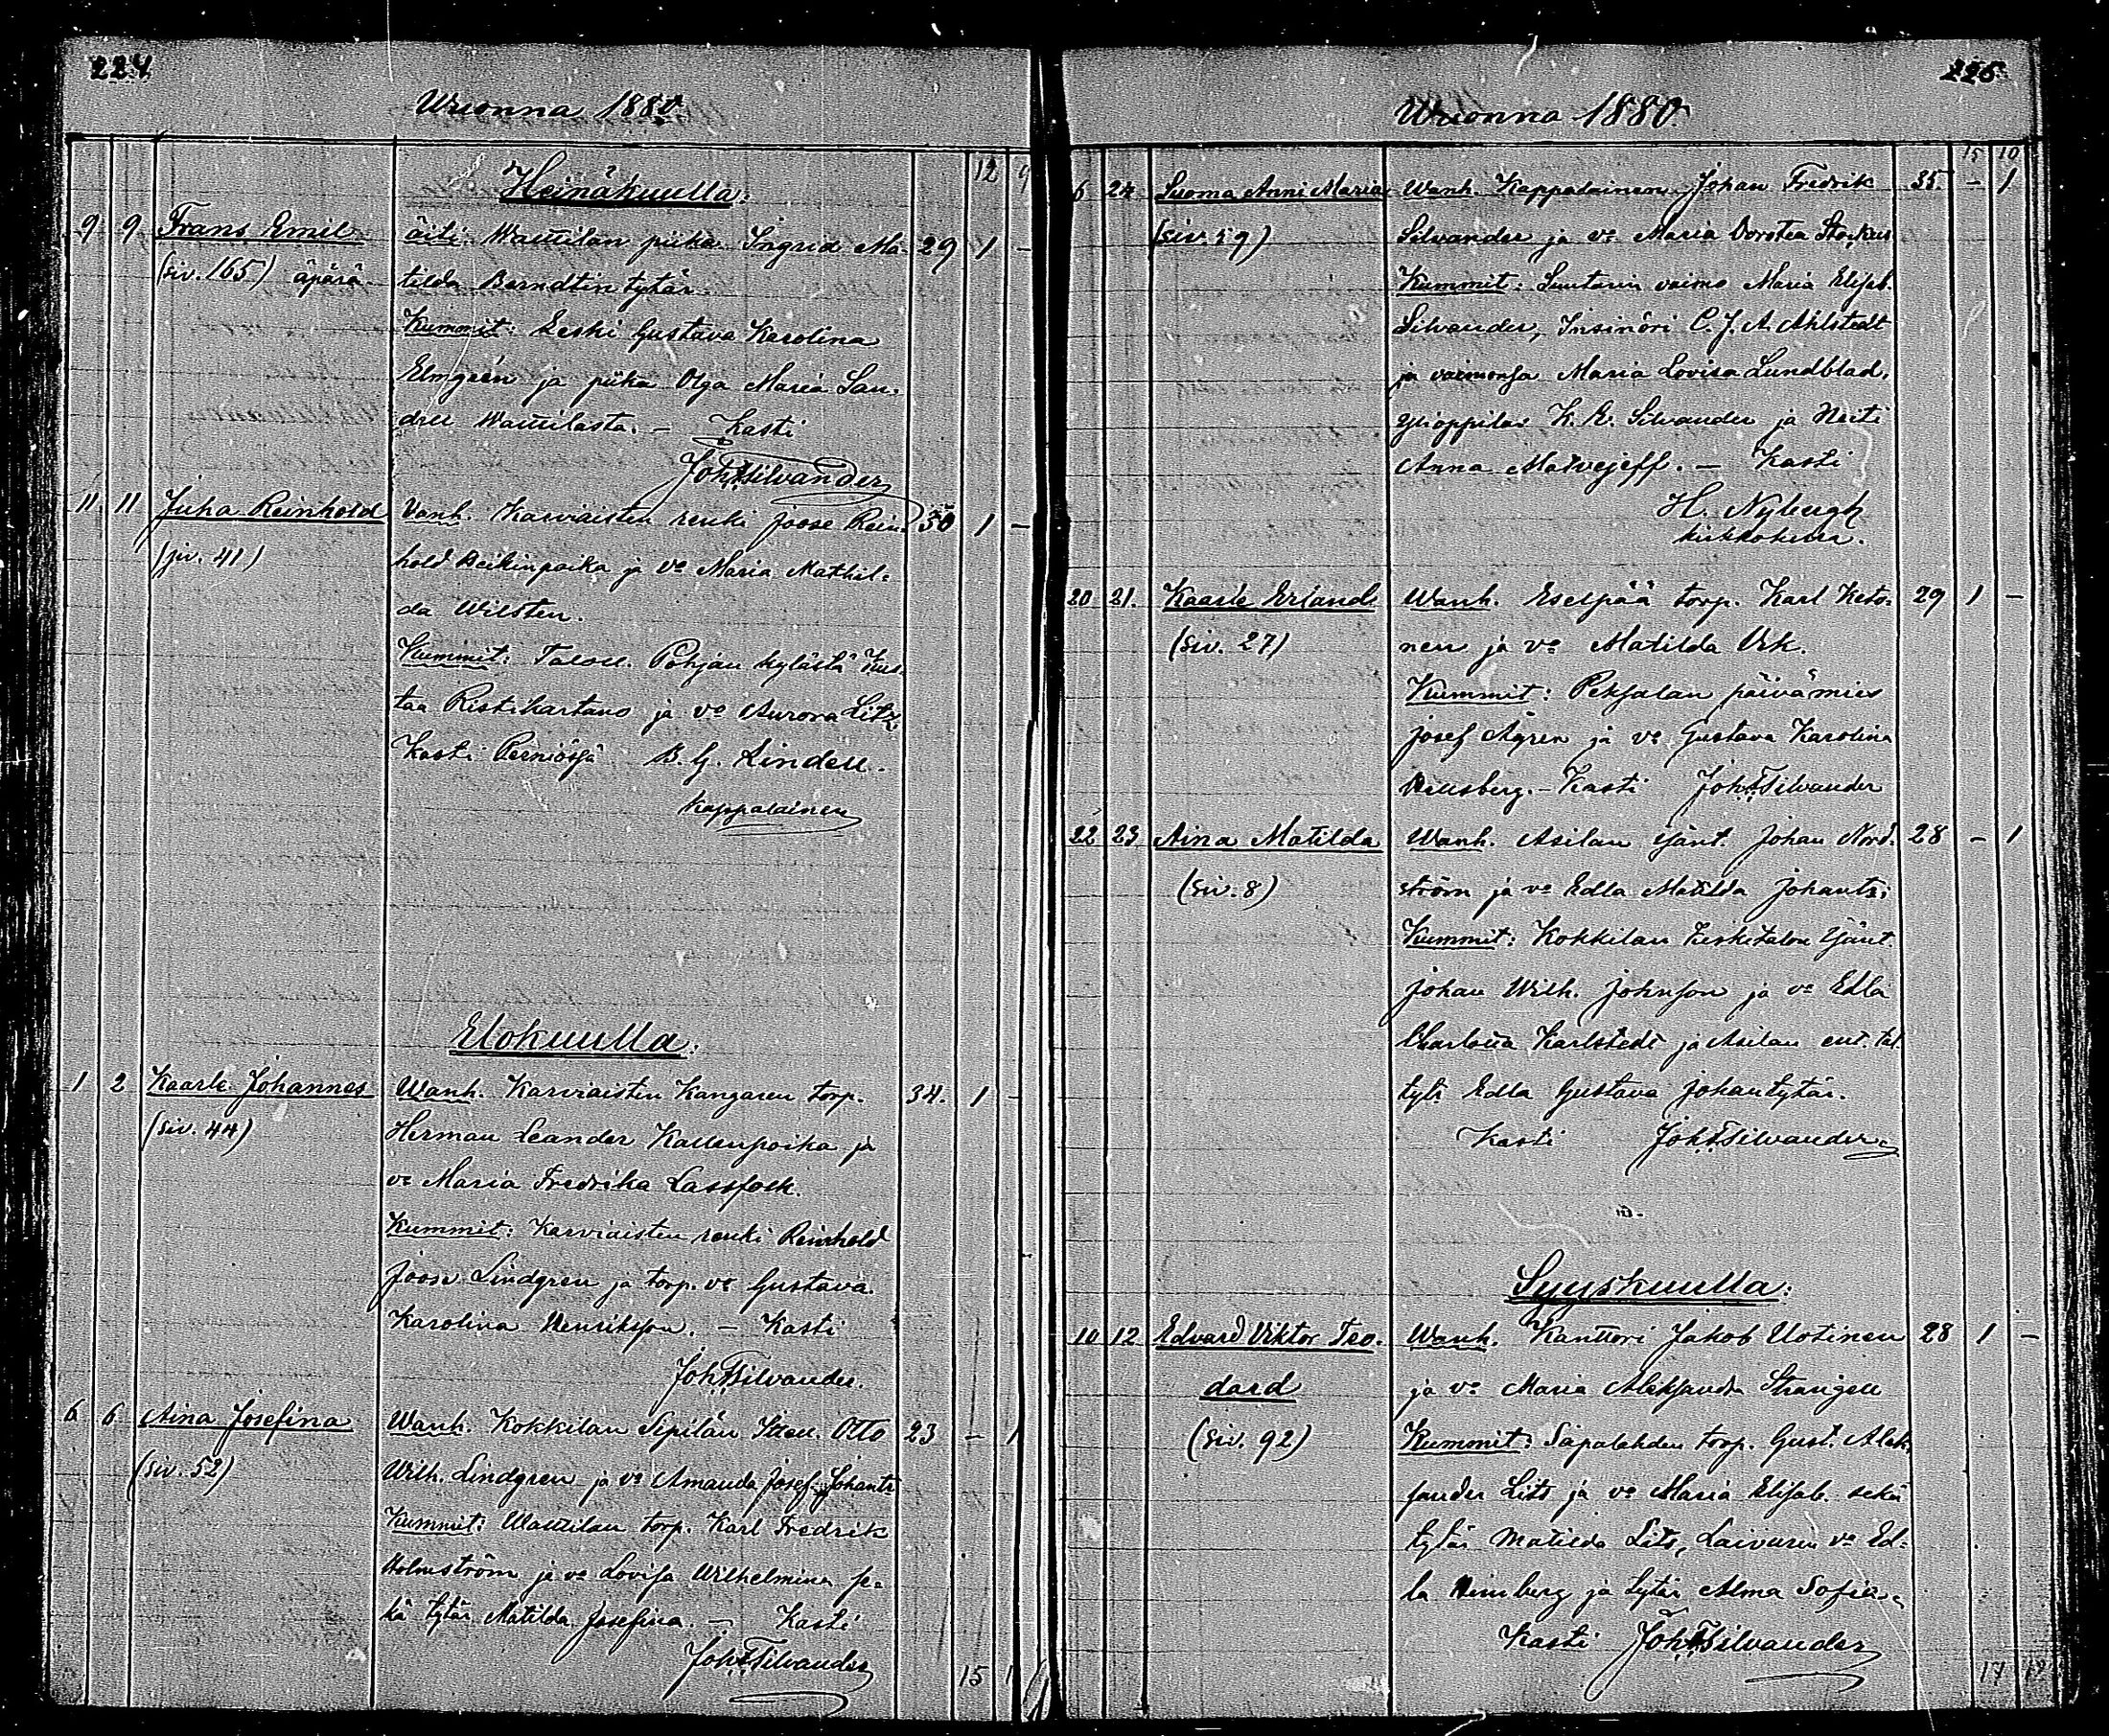 224
Wuonna 1880.
12 9
Heinäkuulla:
9 9 Frans Emil äiti Wattilan piika Ingrid Ma- 29 1 -
(siv. 165) äpärä. tilda Berndtin tytär.
Kummit: Leski Gustava Karolina
Elmgrén ja piika Olga Maria San-
dell Wattilasta. - Kasti
Joh. F. Silvander
11. 11 Juha Reinhold Vanh. Karviaisten renki Joose Rein- 30 1 -
(siv. 41) hold Heikinpoika ja vo Maria Mathil-
da Wilsten.
Kummit: Talon. Pohjan kylästä Kus-
taa Ristikartano ja vo Aurora Litz.
Kasti Perniössä B. G. Lindell.
kappalainen
Elokuulla:
1 2 Kaarle Johannes Wanh. Karviaisten Kangaren torp. 34. 1 -
(siv. 44) Herman Leander Kallenpoika ja
vo Maria Fredrika Lassfolk.
Kummit: Karviaisten renki Reinhold
Joose Lindgren ja torp. vo Gustava
Karolina Henriksson. - Kasti
Joh. F. Silvander.
6 6 Aina Josefina Wanh. Kokkilan Sepilän Itsell. Otto 23 - 1
(siv. 52) Wilh. Lindgren ja vo Amanda Josef. Johantr
Kummit: Wattilan torp. Karl Fredrik
Holmström ja vo Lovisa Wilhelmina se-
kä tytär Matilda Josefina. - Kasti
Joh. F. Silvander
15
225
Wuonna 1880.
15 10
6 24 Suoma Anni Maria Wanh. Kappalainen Johan Fredrik 35. - 1
(siv. 59) Silvander ja vo Maria Dorotea Stockus
Kummit: Suutarin vaimo Maria Elisab.
Silvander, Insinöri C. J. A. Ahlstedt
ja vaimonsa Maria Lovisa Lundblad.
Ylioppilas K. E. Silvander ja Neiti
Anna Matvejeff. - Kasti
H. Nybergh
kirkkoherra.
20 21. Kaarle Erland Wanh. Eselpää torp. Karl Keto- 29 1 -
(siv. 27) nen ja vo Matilda Ek.
Kummit: Peksalan päivämies
Josef Ågren ja vo Gustava Karolina
Hellsberg. - Kasti Joh. F. Silvander
22 23 Aina Matilda Wanh. Asilan isänt. Johan Nord- 28 - 1
(siv. 8) ström ja vo Edla Matilda Johantr;
Kummit: Kokkilan Keskitalon Isänt.
Johan Wilh. Johnson ja vo Edla
Charlotta Karlstedt ja Asilan ent. tal.
tytr Edla Gustava Johantytär.
Kasti Joh. F. Silvander
Syyskuulla:
10 12 Edvard Viktor Teo- Wanh. Kanttori Jakob Uotinen 28 1 -
dard ja vo Maria Aleksandra Strangell
(siv. 92) Kummit: Sapalahden torp. Gust. Alek-
sander Lits ja vo Maria Elisab. sekä
tytär Matilda Lits, Laivurin vo Ed-
la Heimberg ja tytär Alma Sofia.
Kasti Joh. F. Silvander
17 12